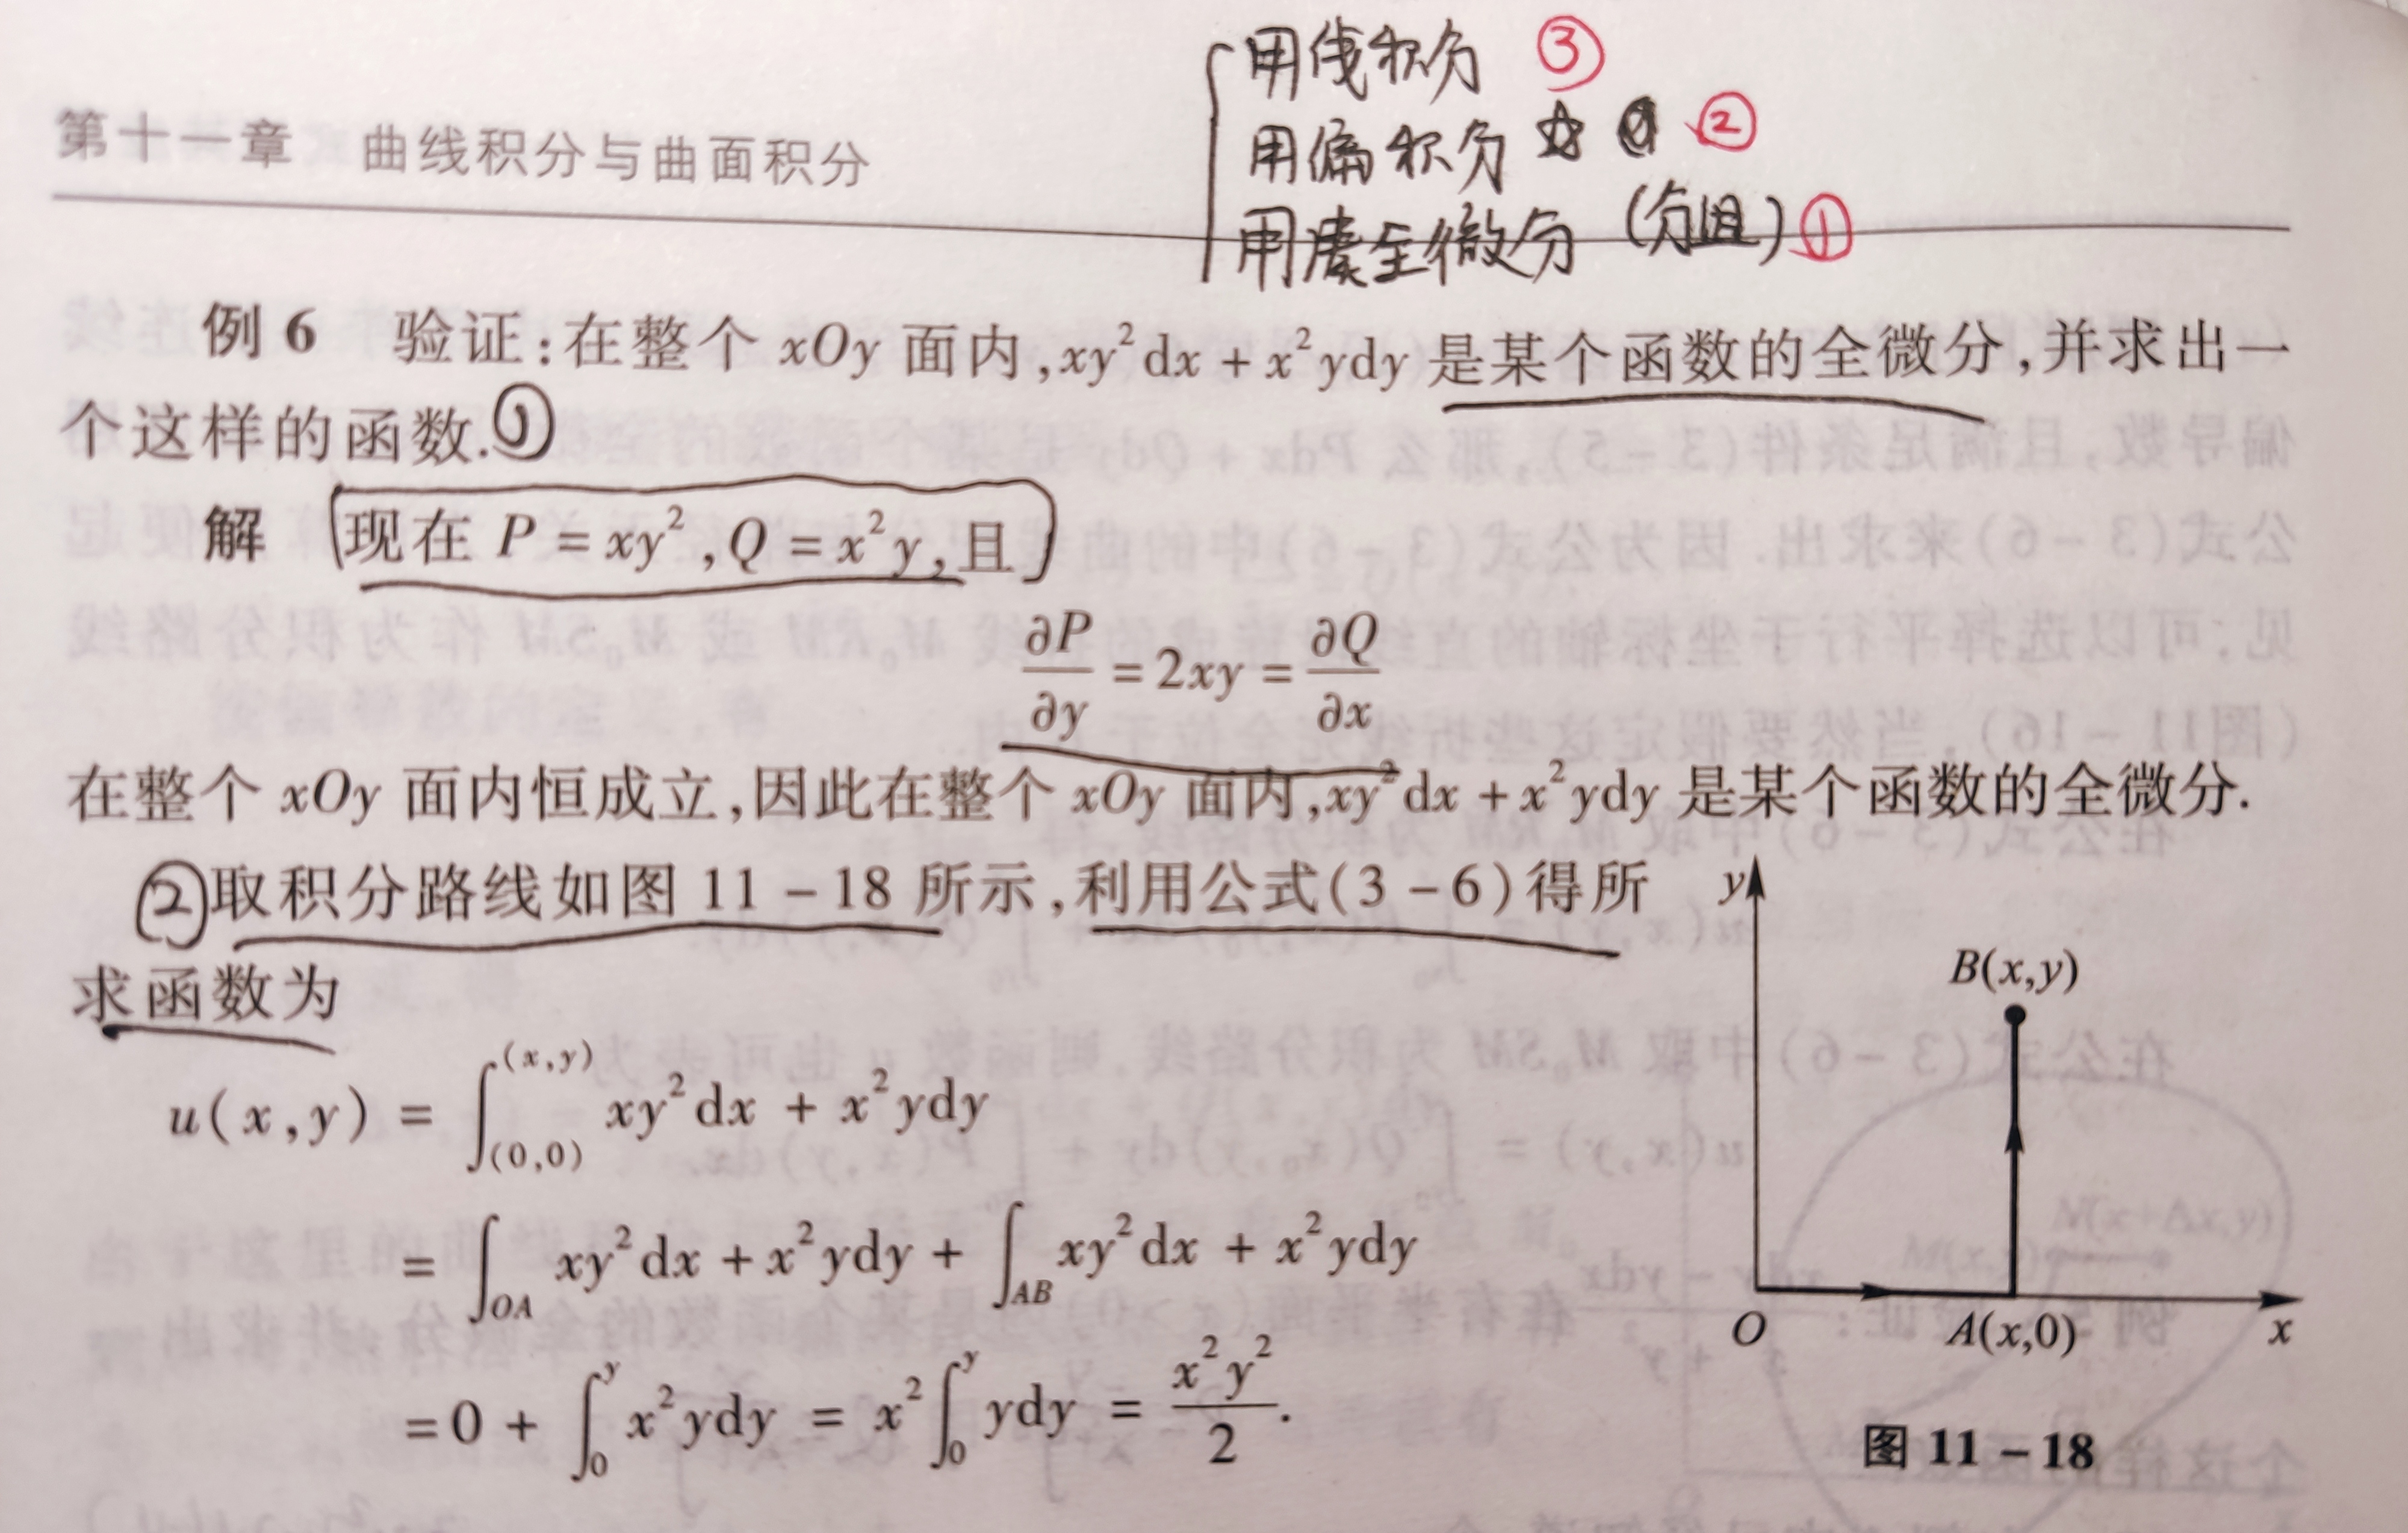 用线积分 ③
用偏积分 ☆ ②
用凑全微分 (分组) ①
第十一章 曲线积分与曲面积分
例 6 验证:在整个 xOy 面内,xy²dx + x²ydy 是某个函数的全微分,并求出一
个这样的函数.①
解 现在 P = xy², Q = x²y,且
∂P/∂y = 2xy = ∂Q/∂x
在整个 xOy 面内恒成立,因此在整个 xOy 面内,xy²dx + x²ydy 是某个函数的全微分.
②取积分路线如图 11 - 18 所示,利用公式(3 - 6)得所
求函数为
u(x,y) = ∫_(0,0)^(x,y) xy²dx + x²ydy
= ∫_OA xy²dx + x²ydy + ∫_AB xy²dx + x²ydy
= 0 + ∫_0^y x²ydy = x²∫_0^y ydy = x²y²/2.
y
B(x,y)
O A(x,0) x
图 11 - 18